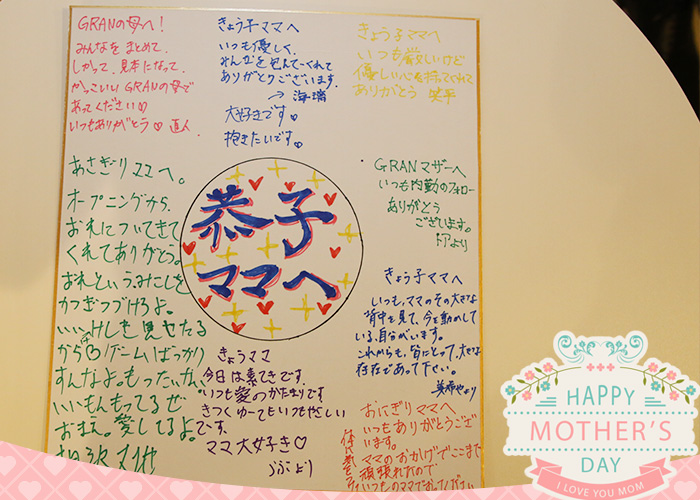 GRANの母へ!
みんなを まとめて、
しかって、見本になって、
かっこいい GRANの母で
あってください♡
いつもありがとう♡ 直人
きょう子ママへ
いつも優しく、
みんなを包んでくれて
ありがとうございます。
→ 海瑠
大好きです。
抱きたいです。
きょう子ママへ
いつも厳しいけど
優しい心を持ってくれて
ありがとう 笑平
あさぎりママへ。
オープニングから、
おれについてきて
くれてありがとう。
おれという、みこしを
かつぎつづけろよ。
いいけしきを見せたる
から♡ゲームばっかり
すんなよ。もったいない、
いいもんもってるぜ
おまえ。愛してるよ。
恭子
ママへ
GRANマザーへ
いつも内勤のフォロー
ありがとう
ございます。
ドアより
きょう子ママへ
いつも、ママのその大きな
背中を見て、今を動めてい
る、自分がいます。
これからも、皆にとって、大きな
存在であって下さい。
きょうママ
今日は素てきです。
いつも愛のかたまりです
きつくゆーてもいつもやさしい
です。
ママ大好き♡
らぶより
おにぎりママへ
いつもありがとうござ
います。
ママのおかげでここまで
頑張れたので
HAPPY
MOTHER'S
DAY
I LOVE YOU MOM